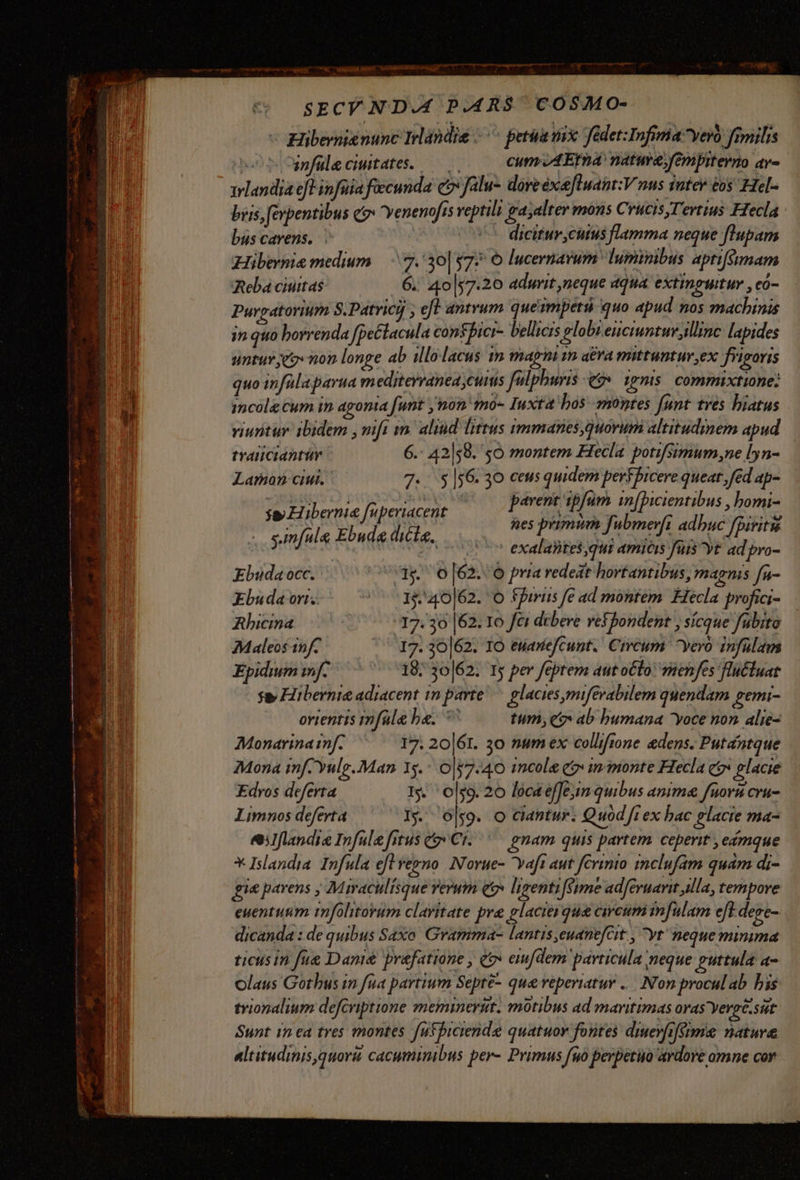 SECVNDA PARS COSMO-
Hiberniæ nunc Irlandiæ
insulæ ciuitates.
Irlandia est insula fœcunda & salu-
bris, serpentibus & venenosis reptili
bus carens.
Hiberniæ medium 7. 30|57. 0
Reba ciuitas 6. 40|57. 20
Purgatorium S. Patricij, est antrum
in quo horrenda spectacula conspici-
untur, & non longe ab illo lacus in
quo insula parua mediterranea, cuius
incolæ cum in agonia sunt, non mo-
riuntur ibidem, nisi in aliud littus
traiiciantur 6. 42|58. 50
Laman ciui. 7. 5|56. 30
Hiberniæ superiacent
5. insulæ Ebudæ dictæ.
Ebuda occ. 15. 0|62. 0
Ebuda ori. 15. 40|62. 0
Rhicina 17. 30|62. 10
Maleos ins. 17. 30|62. 10
Epidium ins. 18. 30|62. 15
Hiberniæ adiacent in parte
orientis insulæ hæ.
Monarina ins. 17. 20|61. 30
Mona ins. vulg. Man 15. 0|57. 40
Edros deserta 15. 0|59. 20
Limnos deserta 15. 0|59. 0
Islandiæ Insulæ situs & Ci.
* Islandia Insula est regno Norue-
giæ parens, Miraculisque rerum &
euentuum insolitorum claritate præ
dicanda: de quibus Saxo Gramma-
ticus in suæ Daniæ præfatione, &
Olaus Gothus in sua partium Septē-
trionalium descriptione meminerūt.
Sunt in ea tres montes suspiciendæ
altitudinis, quorū cacuminibus per-
petua nix sedet: Infima verò similis
cum Aetna naturæ, sempiterno ar-
dore exæstuant: Vnus inter eos Hel-
ga, alter mons Crucis, Tertius Hecla
dicitur, cuius flamma neque stupam
lucernarum luminibus aptissimam
adurit, neque aqua extinguitur, eó-
que impetu quo apud nos machinis
bellicis globi eiiciuntur, illinc lapides
magni in aëra mittuntur, ex frigoris
sulphuris & ignis commixtione:
Iuxta hos montes sunt tres hiatus
immanes, quorum altitudinem apud
montem Hecla potissimum, ne lyn-
ceus quidem perspicere queat, sed ap-
parent ipsum inspicientibus, homi-
nes primum submersi adhuc spiritū
exalantes, qui amicis suis vt ad pro-
pria redeāt hortantibus, magnis su-
spiriis se ad montem Hecla profici-
sci debere respondent, sicque subito
euanescunt. Circum verò insulam
per septem aut octo menses fluctuat
glacies, miserabilem quendam gemi-
tum, & ab humana voce non alie-
num ex collisione ædens. Putántque
incolæ & in monte Hecla & glacie
loca esse, in quibus animæ suorū cru-
ciantur. Quòd si ex hac glacie ma-
gnam quis partem ceperit, eámque
vasi aut scrinio inclusam quàm di-
ligentissime adseruarit, illa, tempore
glaciei quæ circum insulam est dege-
lantis, euanescit, vt neque minima
eiusdem particula neque guttula a-
quæ reperiatur. Non procul ab his
motibus ad maritimas oras vergē. sūt
quatuor fontes diuersissimæ naturæ
Primus suo perpetuo ardore omne cor